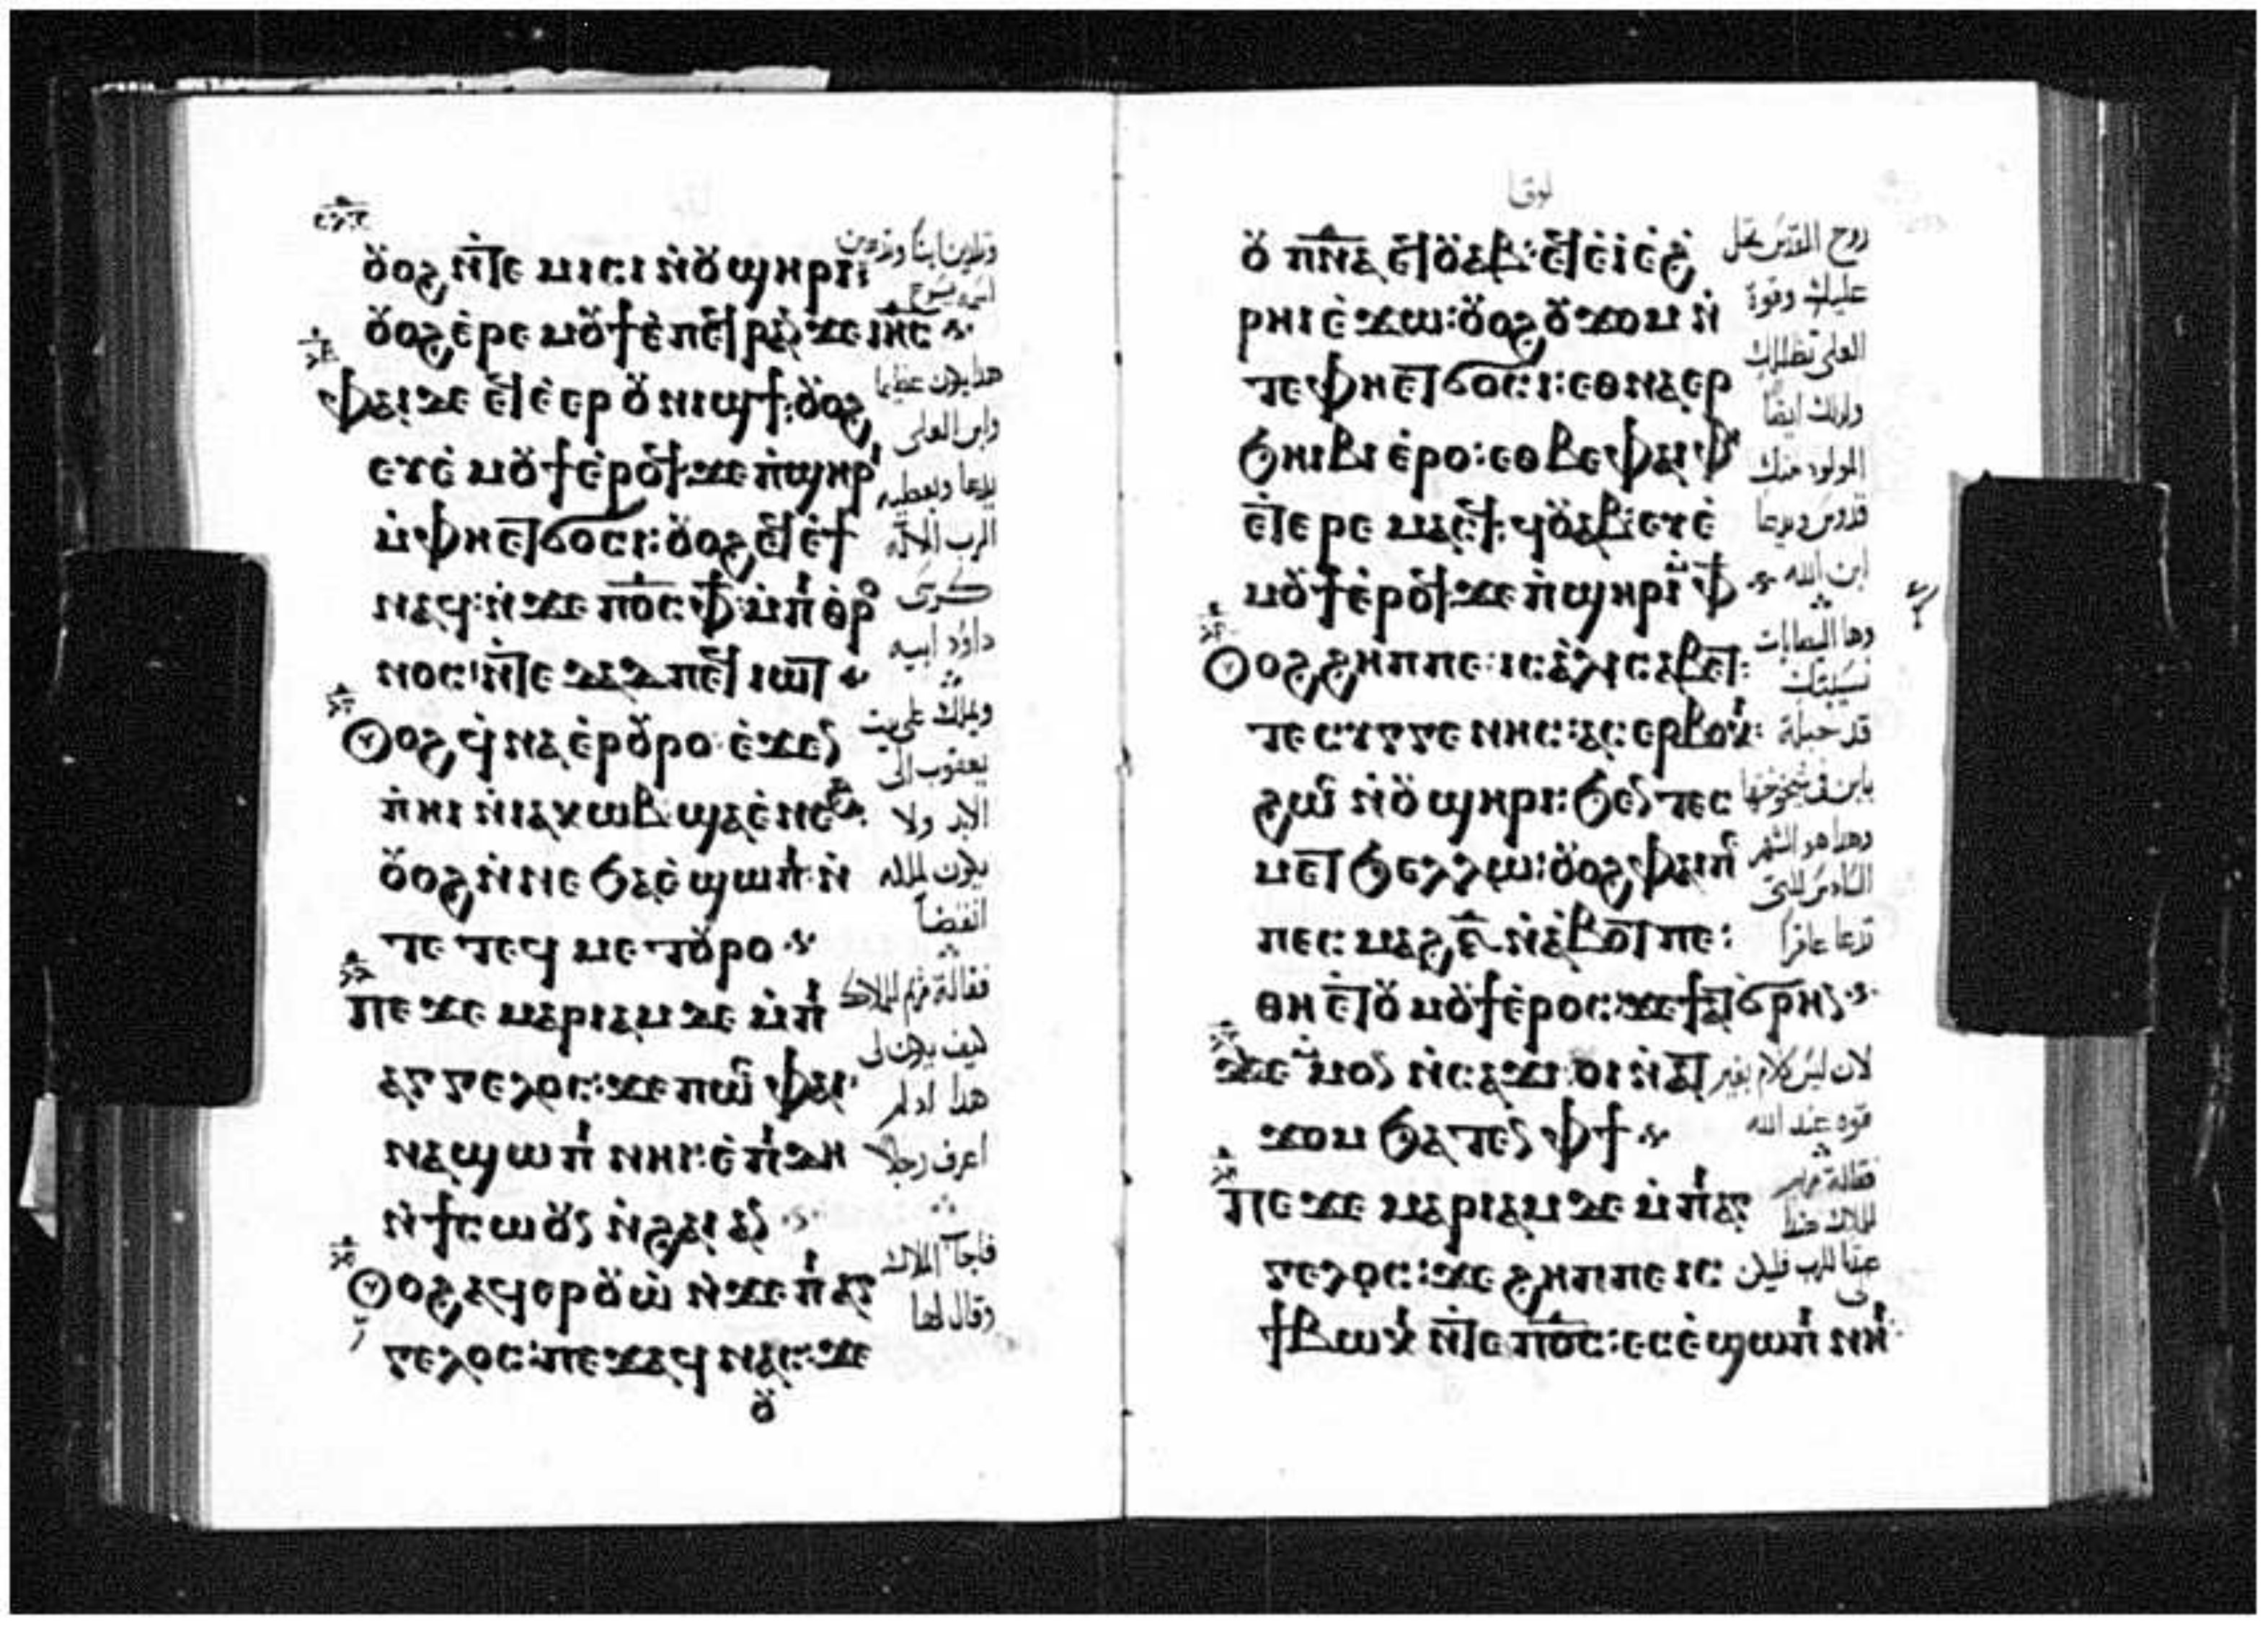 ⲟⲩⲟϩ ⲛ̀ⲧⲉ ⲙⲓⲥⲓ ⲛ̀ⲟⲩϣⲏⲣⲓ:
ⲟⲩⲟϩ ⲉ̀ⲣⲉ ⲙⲟⲩϯ ⲉ̀ⲡⲉϥⲣⲁⲛ ϫⲉ ⲓⲏⲥ
ⲫⲁⲓ ϫⲉ ⲉϥⲉ̀ⲉⲣ ⲟⲩⲛⲓϣϯ: ⲟⲩⲟϩ
ⲉⲩⲉ̀ ⲙⲟⲩϯ ⲉ̀ⲣⲟϥ: ϫⲉ ⲡ̀ϣⲏⲣⲓ
ⲙ̀ⲫⲏⲉⲧϭⲟⲥⲓ: ⲟⲩⲟϩ ⲉϥⲉ̀ϯ
ⲛⲁϥ: ⲛ̀ϫⲉ ⲡⲟ̅ⲥ̅ ⲫϯ: ⲙ̀ⲡⲓⲑⲣⲟ
ⲛⲟⲥ: ⲛ̀ⲧⲉ ⲇⲁⲇ ⲡⲉϥⲓⲱⲧ
ⲟⲩⲟϩ ϥ̀ⲛⲁⲉ̀ⲣⲟⲩⲣⲟ ⲉ̀ϫⲉⲛ
ⲡ̀ⲏⲓ ⲛ̀ⲓⲁⲕⲱⲃ ϣⲁⲉ̀ⲛⲉϩ:
ⲟⲩⲟϩ ⲛ̀ⲛⲉ ϧⲁⲉ̀ ϣⲱⲡⲓ ⲛ̀
ⲧⲉ ⲧⲉϥ ⲙⲉⲧⲟⲩⲣⲟ
ⲡⲉϫⲉ ⲙⲁⲣⲓⲁⲙ ϫⲉ ⲙ̀ⲡⲓ
ⲁⲅⲅⲉⲗⲟⲥ: ϫⲉ ⲡⲱⲥ ⲫⲁⲓ
ⲛⲁϣⲱⲡⲓ ⲛⲏⲓ: ⲉ̀ⲡⲓⲇⲏ
ⲛ̀ϯⲥⲱⲟⲩⲛ ⲛ̀ϩⲁⲓ ⲁⲛ
ⲟⲩⲟϩ ⲁϥⲉⲣⲟⲩⲱ̀ ⲛ̀ϫⲉ ⲡⲓⲁⲅ
ⲅⲉⲗⲟⲥ: ⲡⲉϫⲁϥ ⲛⲁⲥ: ϫⲉ
ⲟⲩ
وتلدين ابنًا وتدعين
اسمه يسوع
هذا يكون عظيما
وابن العلى
يدعا ويعطيه
الرب الاله
كرسى
داود ابيه
ويملك على بيت
يعقوب الى
الابد ولا
يكون لملكه
انقضآ
فقالة مريم للملاك
كيف يكون لى
هذا اذ لم
اعرف رجلًا
فاجآ الملاك
وقال لها
لوقا
ⲟⲩ ⲡⲛ̅ⲁ̅ ⲉϥⲟⲩⲁⲃ: ⲉϥⲉ̀ⲓ̀ ⲉ̀ϩ
ⲣⲏⲓ ⲉ̀ϫⲱ: ⲟⲩⲟϩ ⲟⲩϫⲟⲙ ⲛ̀
ⲧⲉ ⲫⲏⲉⲧϭⲟⲥⲓ: ⲉⲑⲛⲁⲉⲣ
ϧⲏⲓⲃⲓ ⲉ̀ⲣⲟ: ⲉⲑⲃⲉ ⲫⲁⲓ ⲫⲏ
ⲉ̀ⲧⲉⲣⲉ ⲙⲁⲥϥ: ϥⲟⲩⲁⲃ: ⲉⲩⲉ̀
ⲙⲟⲩϯ ⲉ̀ⲣⲟϥ: ϫⲉ ⲡ̀ϣⲏⲣⲓ ⲙ̀ⲫϯ
ⲟⲩⲟϩ ϩⲏⲡⲡⲉ: ⲓⲥ ⲉ̀ⲗⲓⲥⲁⲃⲉⲧ:
ⲧⲉ ⲥⲩⲅⲅⲉⲛⲏⲥ: ⲁⲥ ⲉⲣⲃⲟⲕⲓ:
ϩⲱⲥ ⲛ̀ⲟⲩϣⲏⲣⲓ: ϧⲉⲛ ⲧⲉⲥ
ⲙⲉⲧϧⲉⲗⲗⲱ: ⲟⲩⲟϩ ⲫⲁⲓ ⲡ
ⲡⲉⲥ ⲙⲁϩ ⲋ̅ ⲛ̀ⲁ̀ⲃⲟⲧ ⲡⲉ:
ⲑⲏ ⲉ̀ⲧⲟⲩ ⲙⲟⲩϯ ⲉ̀ⲣⲟⲥ: ϫⲉ ϯⲁϭⲣⲏⲛ
ϫⲉ ⲙ̀ⲙⲟⲛ ⲛ̀ⲥⲁϫⲓ: ⲟⲓ ⲛ̀ⲁⲧ
ϫⲟⲙ ϧⲁⲧⲉⲛ ⲫϯ
ⲡⲉϫⲉ ⲙⲁⲣⲓⲁⲙ ϫⲉ ⲙ̀ⲡⲓⲁⲅ
ⲅⲉⲗⲟⲥ: ϫⲉ ϩⲏⲡⲡⲉ ⲓⲥ
ϯⲃⲱⲕⲓ ⲛ̀ⲧⲉ ⲡⲟ̅ⲥ̅: ⲉⲥⲉ̀ϣⲱⲡⲓ ⲛⲏⲓ
روح القدس تحل
عليك وقوة
العلى تظللك
ولذلك ايضًا
المولود منك
قدوس ويدعا
ابن الله
وها اليصابات
نسيبتك
قد حبلة
بابن فى شيخوختها
وهذا هو الشهر
السادس للتى
تدعا عاقرًا
لان ليس كلام بغير
قوة عند الله
فقالة مريم
للملاك
للرب فليكن